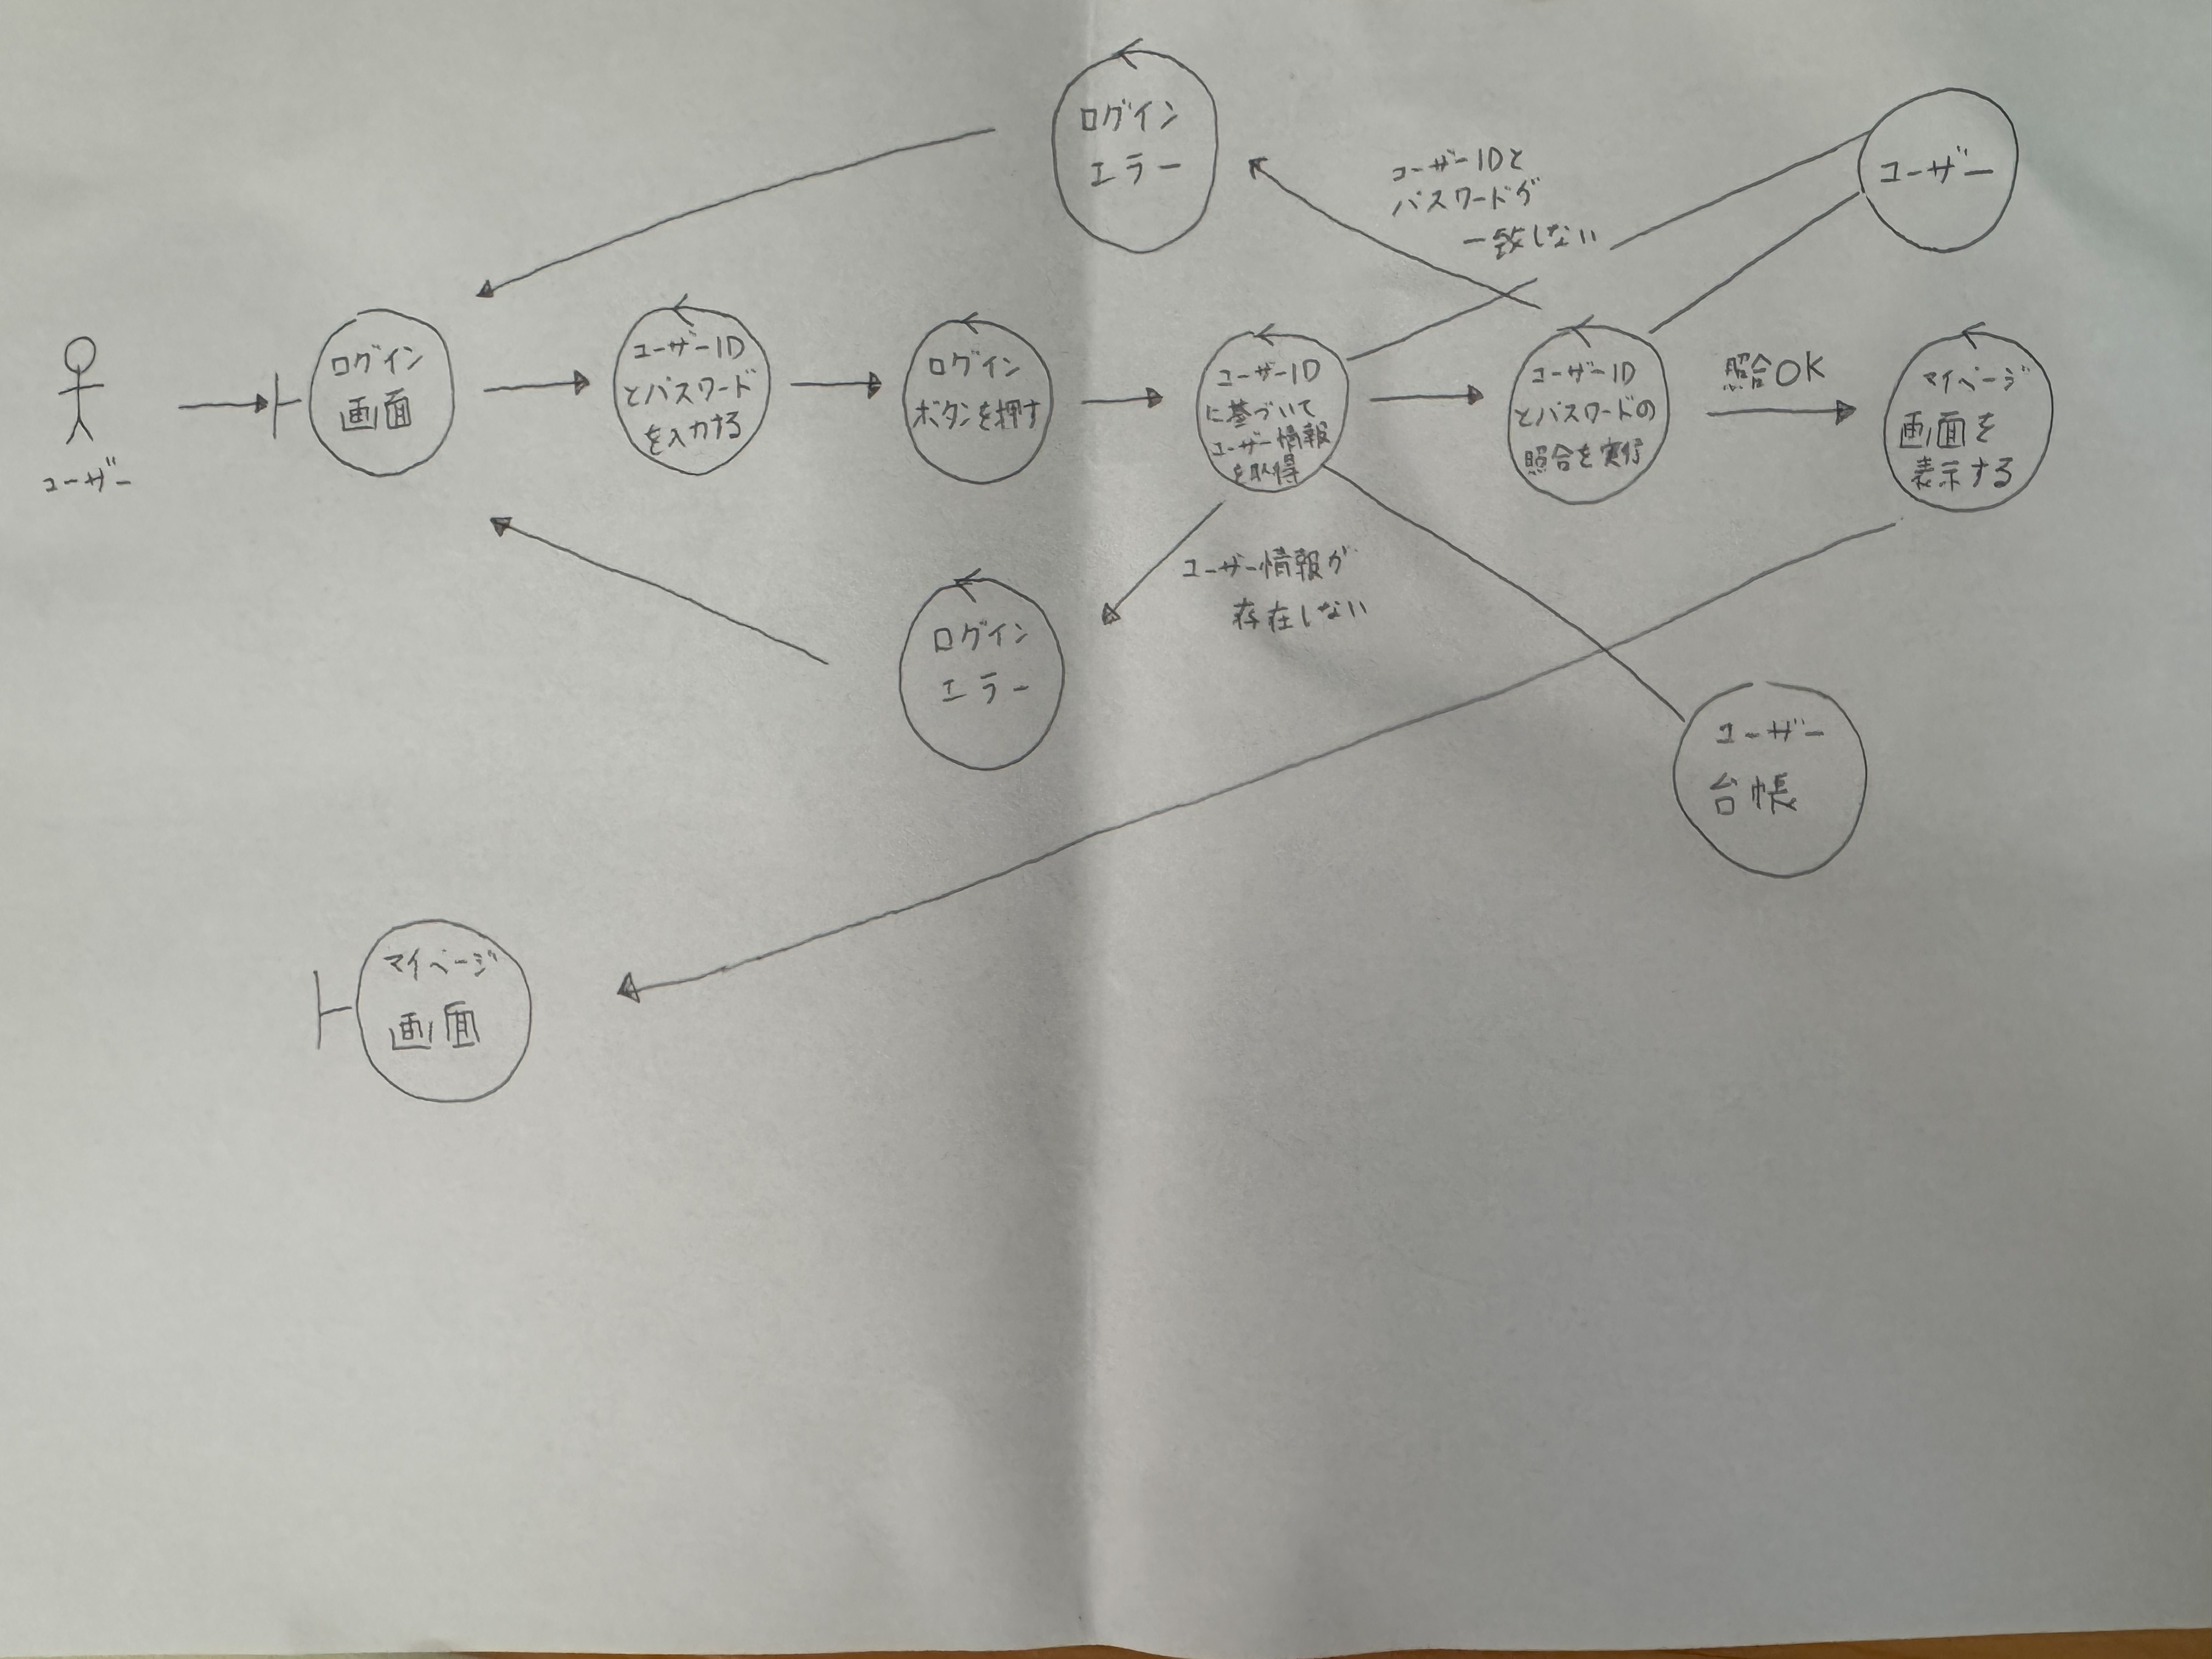 ログイン
エラー
ユーザーIDと
パスワードが
一致しない
ユーザー
ユーザー
ログイン
画面
ユーザーID
とパスワード
を入力する
ログイン
ボタンを押す
ユーザーID
に基づいて
ユーザー情報
を取得
ユーザーID
とパスワードの
照合を実行
照合OK
マイページ
画面を
表示する
ログイン
エラー
ユーザー情報が
存在しない
ユーザー
台帳
マイページ
画面